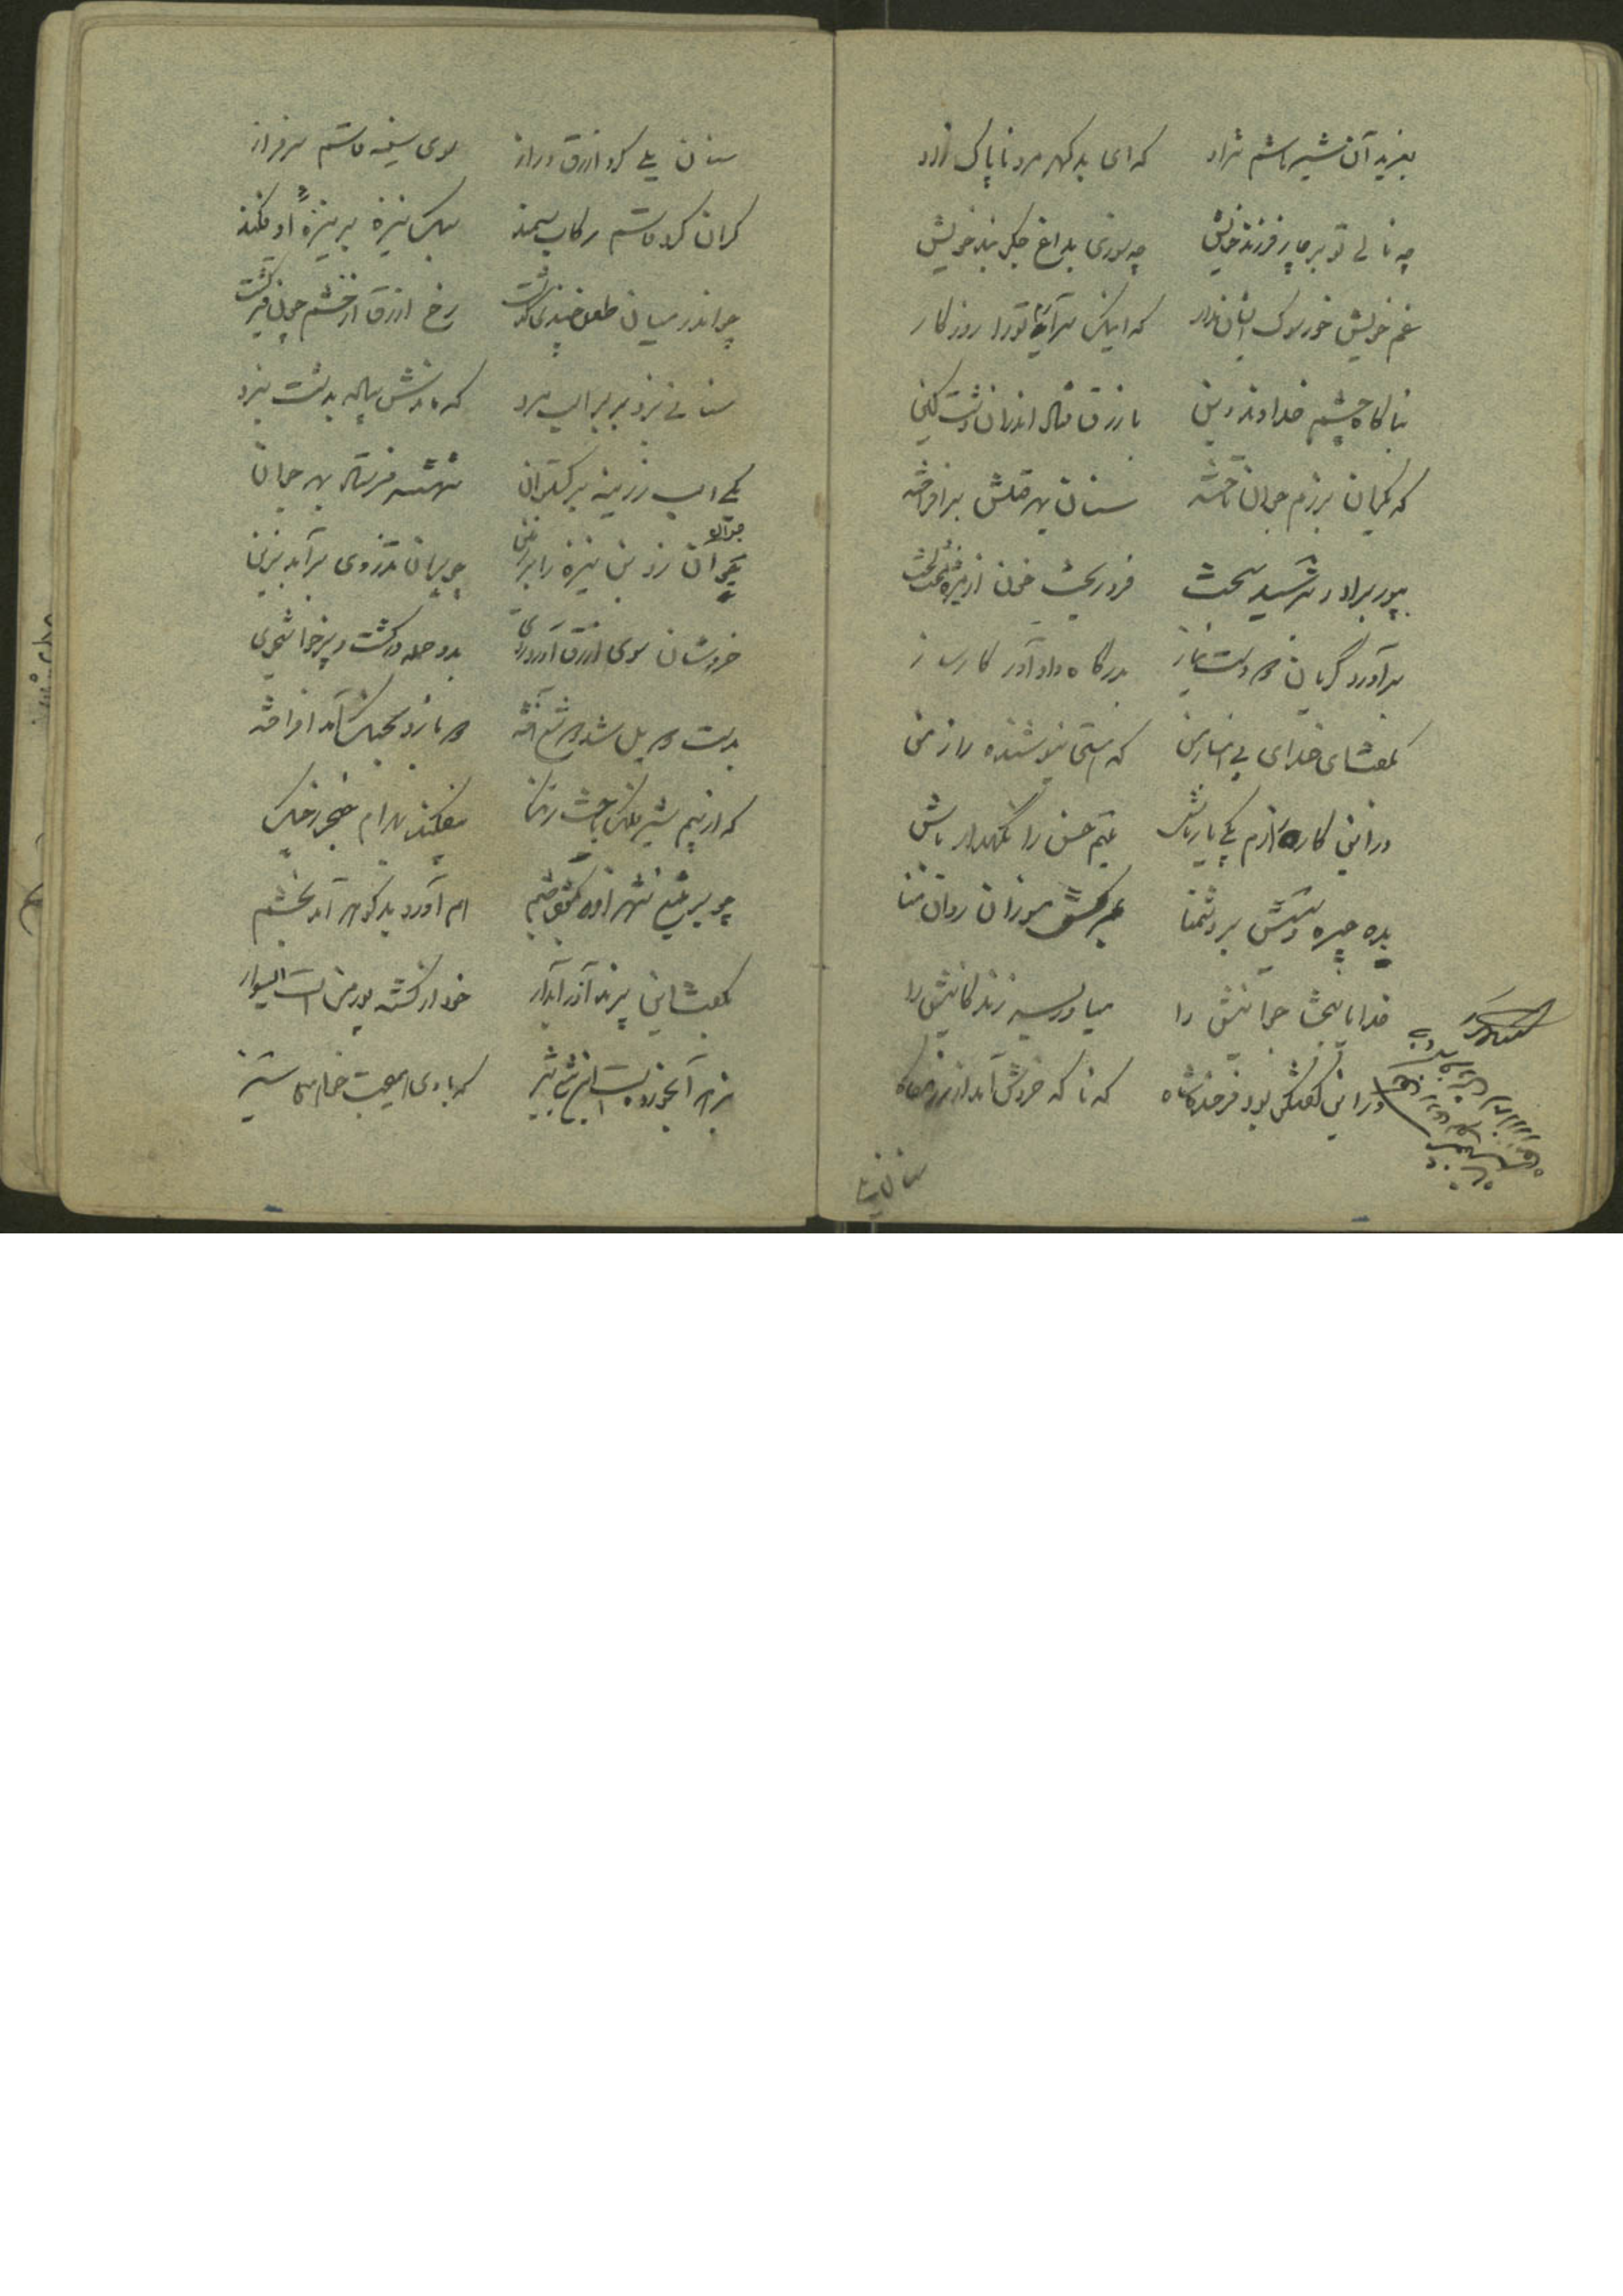 بغرید آن شیر هاشم نژاد که ای بد کهر مرد ناپاک زاد
چه نالی تو بر چار فرزند خویش چه سوزی بداغ جگر بند خویش
غم خویش خور سوک ایشان مدار که اینک سرآید تو را روزگار
بناگاه چشم خداوند دین با زرق فتاد اندران دشت کین
که یکران برزم جوان تاخته سنان بهر قتلش برافراخته
بپور برادر بترسید سخت فرو ریخت خون از مژه لخت لخت
برآورد گریان دو دست نیاز بدرگاه دادآور کارساز
بگفتا ای خدای بی انباز من که هستی نیوشنده راز من
در این کارزارم یکی یار باش یتیم حسن را نگهدار باش
بده چیره دستیش بر دشمنا بمرگش مسوزان روان منا
خدایا ببخشا جوانیش را میاور بسر زندگانیش را
در این گفتگو بود فرخنده شاه که ناگه خروش آمد از رزمگاه
سنان
سنان یلی کرد ازرق دراز سوی سینه قاسم سرفراز
گران کرد قاسم رکاب سمند سبک نیزه بر نیزه او فکند
چو اندر میان طعن چندی گذشت رخ ازرق از خشم چون قیر گشت
سنانی بزد بر بر اسب مرد که ماندش پیاده بدشت نبرد
یکی اسب زرینه برگستوان شهنشه فرستاد بهر جوان
جوان زد بن نیزه را بر زمین چو پران تذروی برآمد بزین
خروشان سوی ازرق آورد روی بدو حمله ور گشت و پرخاشجوی
بدست دو یل شد دو تیغ آخته دو بازو بجنگ آمد افراخته
که از بیم شیر فلک باخت رنگ بیفکند بهرام خنجر ز چنگ
چو بر تیغ شهزاده بگشود چشم ام آورد بد گوهر آمد بخشم
بگفتا این پرند آذر آبدار خود از کشته پور من است استوار
بزهر آبخورده است این تیغ تیز که با وی همیجست خواهی ستیز